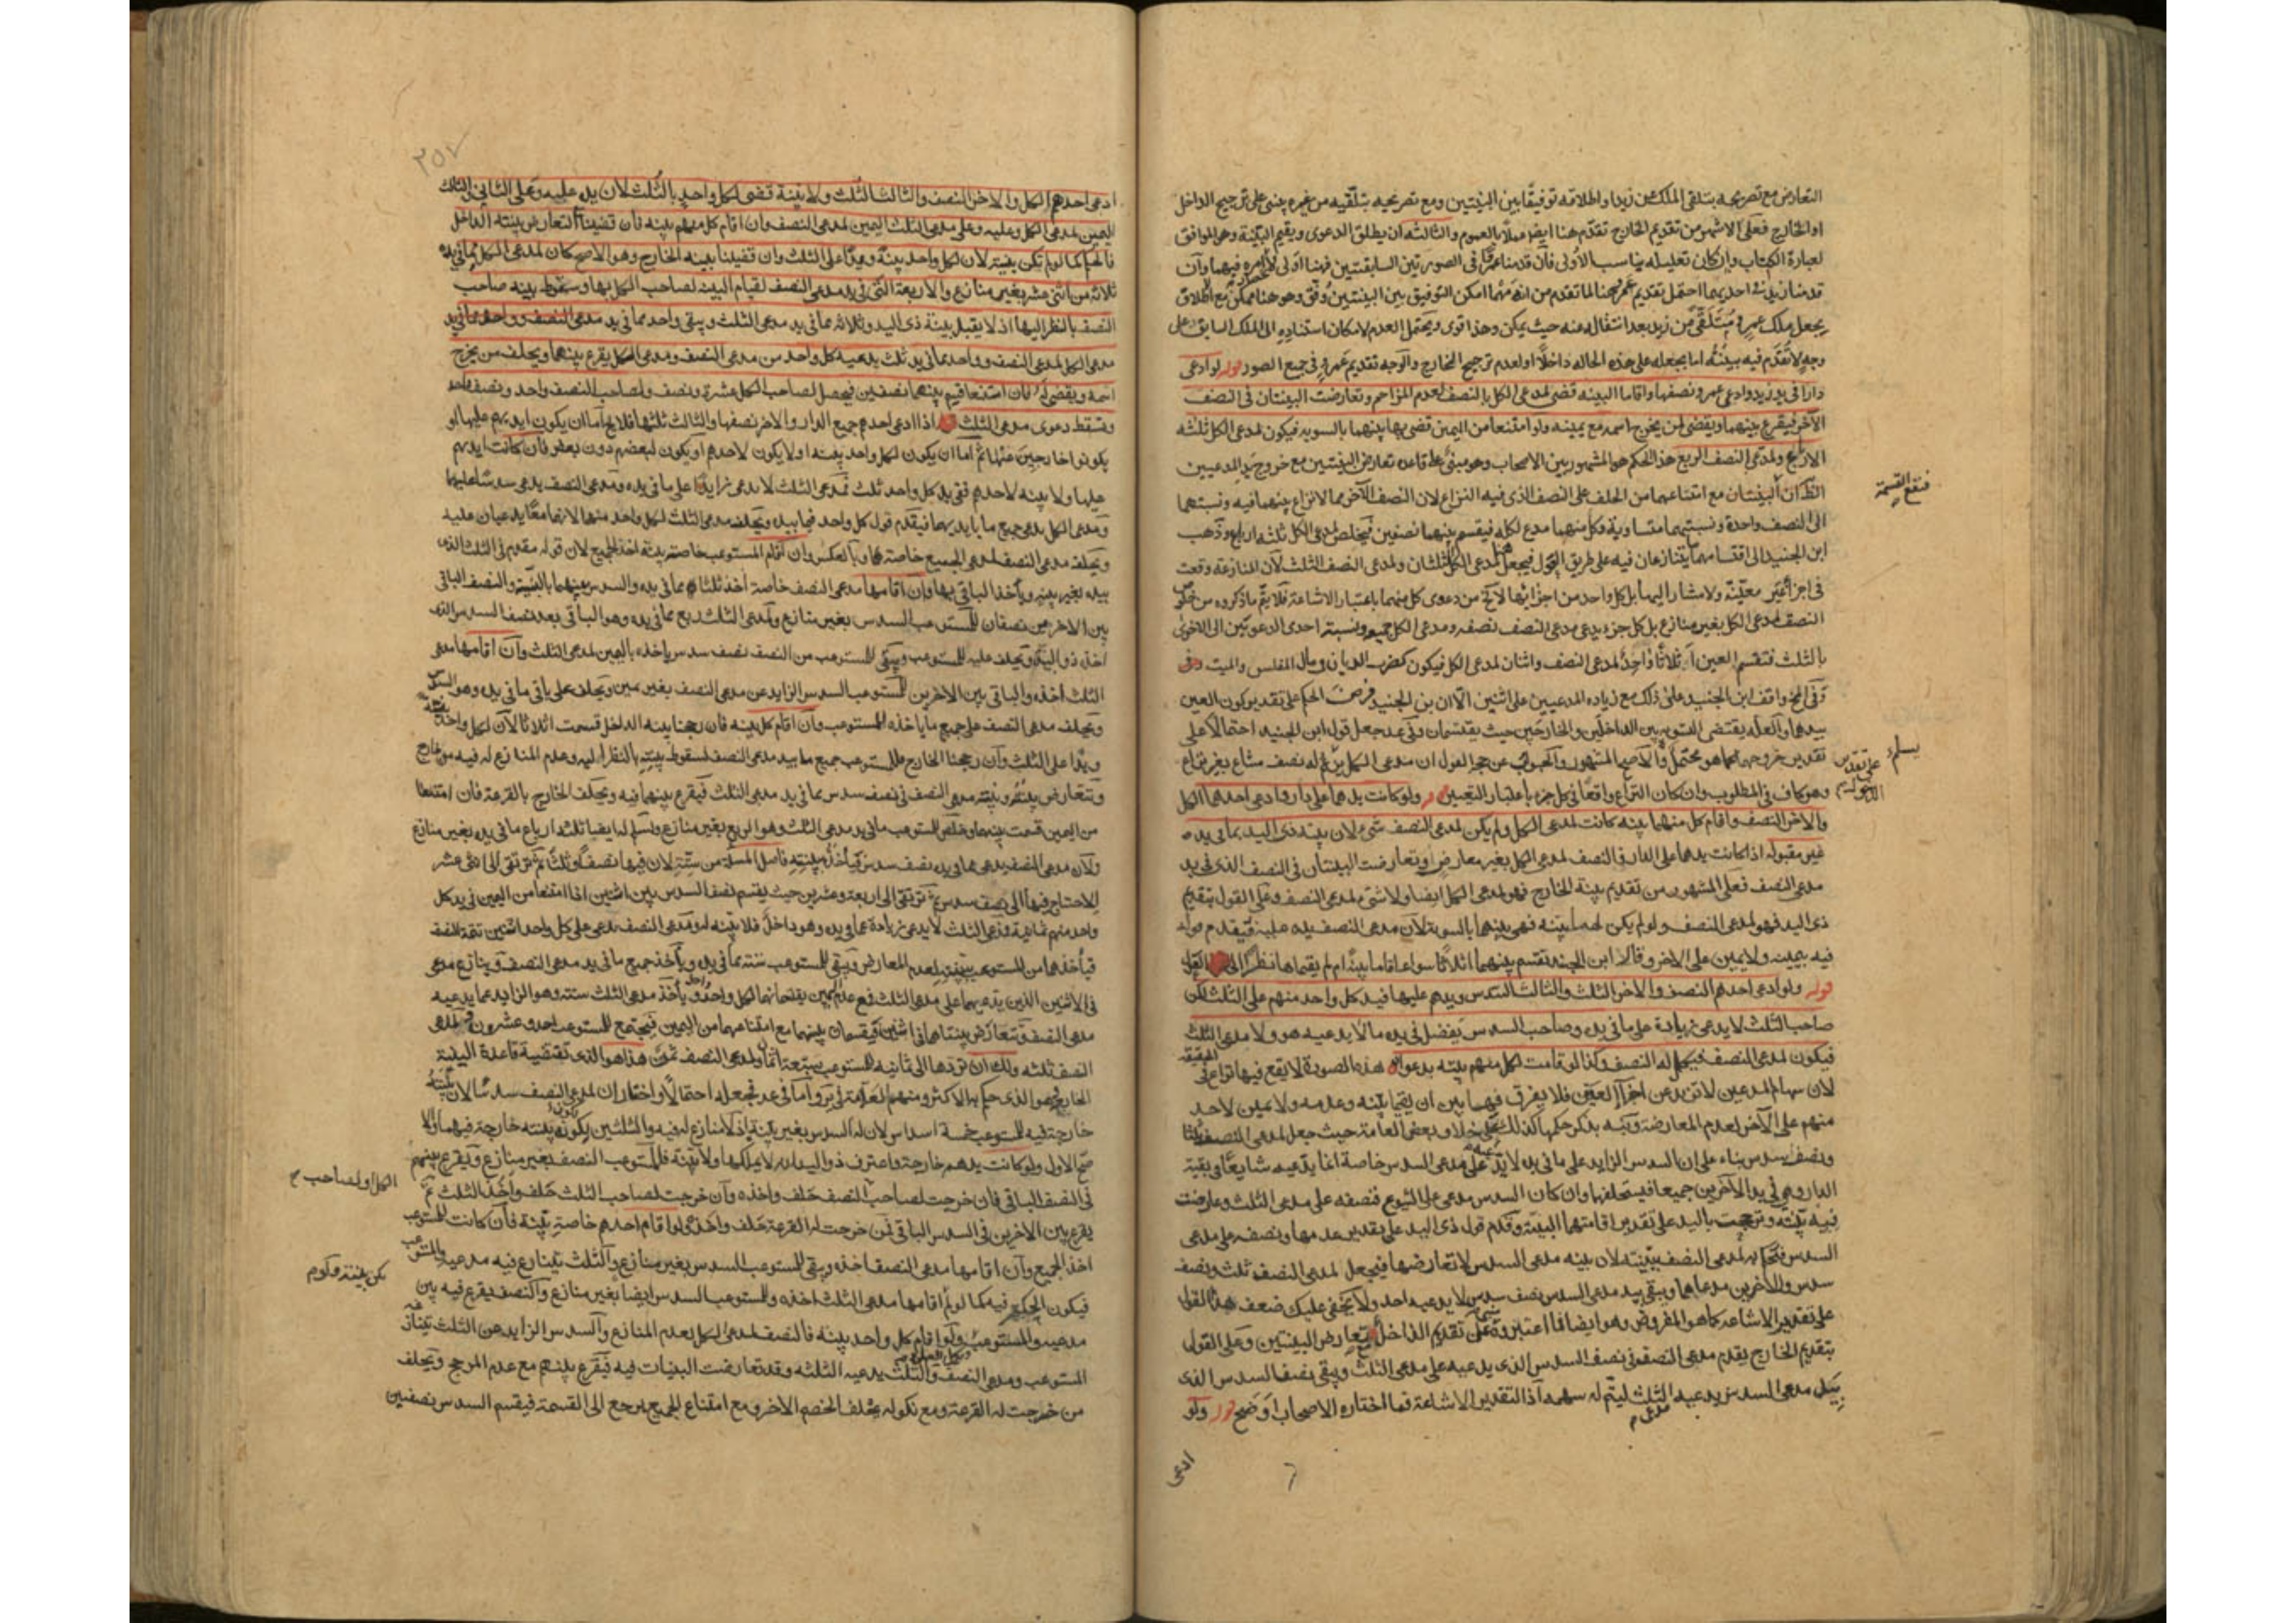 التعارض مع تصريحه بتلقي الملك من زيد او اطلاقه توفيقا بين البينتين ومع تصريحه بتلقيه من غيره يبنى على ترجيح الداخل
او الخارج فعلى الاشهر من تقديم الخارج تقدم هنا ايضا عملا بالعموم والثالثه ان يطلق الدعوى ويقيم البينة وهو الموافق
لعبارة الكتاب وان كان تعليله يناسب الاولى فان قدمنا عمرًا في الصورتين السابقتين فهنا اولى فيهما وان
قدمنا زيد في احديهما احتمل تقديم عمرو هنا لما تقدم من انه مهما امكن التوفيق بين البينتين وفق وهو هنا ممكن مع اطلاق
يجعل ملك عمرو مُتَلقًّى من زيد بعد انتقاله عنه حيث يمكن وهذا قوى ويحتمل العدم لامكان استناده الى الملك السابق على
وجه لا تُقَدَّم فيه بينته اما بجعله على هذه الحاله داخلا او لعدم ترجيح الخارج والوجه تقديم عمرو في جميع الصور قوله لو ادعى
دارا في يد زيد وادعى عمرو نصفها واقاما البينه قضى لمدعى الكل بالنصف لعدم المزاحم وتعارضت البينتان في النصف
الآخر فيقرع بينهما ويقضى لمن يخرج اسمه مع يمينه ولو امتنعا من اليمين قضى بها بينهما بالسويه فيكون لمدعى الكل ثلثه
الارباع ولمدعى النصف الربع هذا الحكم هو المشهور بين الاصحاب وهو مبنى على قاعده تعارض البينتين مع خروج يد المدعيين
البينتان مع امتناعهما من الحلف على النصف الذي فيه النزاع لان النصف الآخر مما لا نزاع بينهما فيه ونسبتهما
الى النصف واحدة ونسبتهما متساوية وكل منهما مدع لكله فيقسم بينهما نصفين فيخلص لمدعى الكل ثلثه ارباع وذهب
ابن الجنيد الى اقتسامهما ما يتنازعان فيه على طريق العول فيجعل هنا لمدعى الكل الثلثان ولمدعى النصف الثلث لان المنازعة وقعت
في اجزاء غير معينه ولا مشار اليها بل كل واحد من اجزائها لا يخ من دعوى كل منهما باعتبار الاشاعة فلا يتم ما ذكروه من خلوص
النصف لمدعى الكل بغير منازع بل كل جزء يدعى مدعى النصف نصفه ومدعى الكل جميعه ونسبة احدى الدعويين الى الاخرى
بالثلث فتقسم العين اثلاثًا واحد لمدعى النصف واثنان لمدعى الكل فيكون كضرب الديان ومال المفلس والميت
وفي المخ وافق ابن الجنيد على ذلك مع زياده المدعيين على اثنين الا ان بن الجنيد فرض الحكم على تقدير كون العين
بيدهما والعله يقتضى التسويه بين الداخلين والخارجين حيث يقتسمان وفي عد جعل قول ابن الجنيد احتمالا على
تقدير خروجهما وهو محتمل والاصح المشهور والجواب عن حجة العول ان مدعى الكل يسلم له نصف مشاع بغير نزاع
وهو كاف في المطلوب وان كان النزاع واقعًا في كل جزء باعتبار التعيين قوله ولو كانت يدهما على دار فادعى احدهما الكل
والاخر النصف واقام كل منهما بينه كانت لمدعى الكل ولم يكن لمدعى النصف شيء لان بينه ذي اليد بما في يده
غير مقبوله اذا كانت يدهما على الدار فالنصف لمدعى الكل بغير معارض وتعارضت البينتان في النصف الذي في يد
مدعى النصف فعلى المشهور من تقديم بينة الخارج فهو لمدعى الكل ايضا ولا شئ لمدعى النصف وعلى القول بتقديم
ذي اليد فهو لمدعى النصف ولو لم يكن لهما بينه فهي بينهما بالسوية لان مدعى النصف يده عليه فيقدم قوله
فيه بيمينه ولا يمين على الاخر وقال ابن الجنيد تقسم بينهما اثلاثًا سواء اقاما بينة ام لم يقيماها نظرًا الى العول
قوله ولو ادعى احدهم النصف والاخر الثلث والثالث السدس ويدهم عليها فيد كل واحد منهم على الثلث لكن
صاحب الثلث لا يدعى زيادة على ما في يده وصاحب السدس يفضل في يده ما لا يدعيه هو ولا مدعى الثلث
فيكون لمدعى النصف فيكمل له النصف وكذا لو قامت لكل منهم بينه بدعواه هذه الصورة لا يقع فيها نزاع في الحقيقه
لان سهام المدعين لا تزيد عن اجزاء العين فلا يفرق فيها بين ان يقيما بينه وعدمه ولا يمين لاحد
منهم على الآخر لعدم المعارضة ونبه بذكر حكمها كذلك على خلاف بعض العامة حيث جعل لمدعى النصف ثلثا
ونصف سدس بناء على ان السدس الزايد على ما في يده لا يدعيه على مدعى السدس خاصة انما يدعيه شايعًا في بقية
الدار وهي في يد الآخرين جميعا فيستحلفها وان كان السدس مدعى على الشيوع فنصفه على مدعى الثلث وعارضت
فيه بينته وترجحت باليد على تقدير اقامتهما البينة وقدم قول ذي اليد على تقدير عدمها ونصفه على مدعى
السدس فيحكم به لمدعى النصف ببينته لان بينه مدعى السدس لا تعارضها فيجعل لمدعى النصف ثلث ونصف
سدس وللآخرين مدعاهما ويبقى بيد مدعى السدس نصف سدس لا يدعيه احد ولا يخفى عليك ضعف هذا القول
على تقدير الاشاعه كما هو المفروض وهو ايضا انما اعتبروه على تقديم الداخل مع تعارض البينتين وعلى القول
بتقديم الخارج يقدم مدعى النصف في نصف السدس الذي يدعيه على مدعى الثلث ويبقى نصف السدس الذي
بيد مدعى السدس يدعيه مدعى الثلث ليتم له سهمه اذ التقدير الاشاعة فما اختاره الاصحاب اوضح قوله ولو
ادعى
فتقع القسمة
على تقدير
٣٥٧
ادعى احدهم الكل والاخر النصف والثالث الثلث ولا بينة قضى لكل واحد بالثلث لان يده عليه وعلى الثاني والثالث
اليمين لمدعى الكل وعليه وعلى مدعى الثلث اليمين لمدعى النصف وان اقام كل منهم بينه فان قضينا مع التعارض ببينه الداخل
فالحكم كما لو لم تكن بينه لان لكل واحد بينةً ويدًا على الثلث وان قضينا ببينه الخارج وهو الاصح كان لمدعى الكل مما في يده
ثلاثه من اثنى عشر بغير منازع والاربعة التي في يد مدعى النصف لقيام البينه لصاحب الكل بها وسقوط بينه صاحب
النصف بالنظر اليها اذ لا يقبل بينة ذي اليد وثلاثه مما في يد مدعى الثلث ويبقى واحد مما في يد مدعى الكل لمدعى النصف وواحد مما في يد
مدعى الثلث يدعيه كل واحد من مدعى النصف ومدعى الكل يقرع بينهما ويحلف من يخرج
اسمه ويقضى له فان امتنعا قسم بينهما نصفين فيحصل لصاحب الكل عشرة ونصف ولصاحب النصف واحد ونصف
وتسقط دعوى مدعى الثلث اذا ادعى احدهم جميع الدار والاخر نصفها والثالث ثلثها فلا يخ اما ان يكون ايديهم عليها او
يكونوا خارجين عنها ثم اما ان يكون لكل واحد بينه او لا يكون لاحدهم او يكون لبعضهم دون بعض فان كانت ايديهم
عليها ولا بينه لاحدهم ففي يد كل واحد ثلث فمدعى الثلث لا يدعى زايدًا على ما في يده ومدعى النصف يدعى سدسًا عليهما
ومدعى الكل يدعى جميع ما بايديهما فيقدم قول كل واحد فيما بيده ويحلف مدعى الثلث لكل واحد منهما لانهما معًا يدعيان عليه
ويحلف مدعى النصف لمدعى الجميع خاصة وبالعكس وان اقام المستوعب خاصة بينه اخذ الجميع لان قوله مقدم في الثلث الذي
بيده بغير بينه ويأخذ الباقي بها وان اقامها مدعى النصف خاصة اخذ ثلثًا مما في يده والسدس بينهما بالبينة والنصف الباقي
بين الآخرين نصفان للمستوعب السدس بغير منازع ولمدعى الثلث ربع مما في يده وهو الباقي بعد نصف السدس الذي
اخذه ذو البينة ويحلف عليه للمستوعب ويبقى للمستوعب من النصف نصف سدس يأخذه باليمين لمدعى الثلث وان اقامها مدعى
الثلث اخذه والباقي بين الاخرين للمستوعب السدس الزايد عن مدعى النصف بغير يمين ويحلف على باقي ما في يده وهو السدس
ويحلف مدعى النصف على جميع ما يأخذه للمستوعب وان اقام كل بينه فان رجحنا بينه الداخل قسمت اثلاثا لان لكل واحد بينة
ويدًا على الثلث وان رجحنا الخارج فللمستوعب جميع ما بيد مدعى النصف لسقوط بينته بالنظر اليه وعدم المنازع له فيه من خارج
وتتعارض بينته وبينه مدعى النصف في نصف سدس مما في يد مدعى الثلث فيقرع بينهما فيه ويحلف الخارج بالقرعة فان امتنعا
من اليمين قسمت بينهما وخلص للمستوعب ما في يد مدعى الثلث وهو الربع بغير منازع وله ايضا ثلثه ارباع ما في يده بغير منازع
ولان مدعى النصف يدعى مما في يده نصف سدس فيأخذه ببينته فاصل المسئلة من ستة لان فيها نصفًا وثلثًا ثم ترتقي الى اثنى عشر
للاحتياج فيها الى نصف سدس ثم ترتقي الى اربعة وعشرين حيث يقسم نصف السدس بين اثنين اذا امتنعا من اليمين في يد كل
واحد منهم ثمانية فمدعى الثلث لا يدعى زيادة عما في يده وهو داخل فلا بينه له ومدعى النصف يدعى على كل واحد اثنين تتمة النصف
فيأخذهما من المستوعب ببينته لعدم المعارض ويبقى للمستوعب سته مما في يده ويأخذ جميع ما في يد مدعى النصف وينازع مدعى
في الاثنين الذين يدعيهما على مدعى الثلث فمع عدم اليمين يقتسمانهما لكل واحد ويأخذ مدعى الثلث ستة وهو الزايد عما يدعيه
مدعى النصف وتتعارض بينتاهما في اثنين فيقسمان بينهما مع امتناعهما من اليمين فيجتمع للمستوعب احد وعشرون ولمدعى
النصف ثلثه ولك ان تردها الى ثمانيه للمستوعب سبعة اثمان ولمدعى النصف ثمن هذا هو الذي تقتضيه قاعدة البينة
الخارجة وهو الذي حكم به الاكثر ومنهم العلامة في ير واما في عد فجعله احتمالا واختار ان لمدعى النصف سدسًا لان بينته
خارجة فيه وللمستوعب خمسة اسداس لان له السدس بغير بينة اذ لا منازع له فيه والثلثين لكون بينته خارجة فيهما والا
صح الاول ولو كانت يدهم خارجة واعترف ذو اليد انه لا يملكها ولا بينه فللمستوعب النصف بغير منازع ويقرع بينهم
في النصف الباقي فان خرجت لصاحب النصف حلف واخذه وان خرجت لصاحب الثلث حلف واخذ الثلث ثم
يقرع بين الآخرين في السدس الباقي فمن خرجت له القرعة حلف واخذه ولو اقام احدهم خاصة بينة فان كانت للمستوعب
اخذ الجميع وان اقامها مدعى النصف اخذه وبقى للمستوعب السدس بغير منازع والثلث يتنازع فيه مدعيه والمستوعب
فيكون الحكم فيه كما لو لم اقامها مدعى الثلث اخذه وللمستوعب السدس ايضا بغير منازع والنصف يقرع فيه بين
مدعيه والمستوعب ولو اقام كل واحد بينة فالنصف لمدعى الكل لعدم المنازع والسدس الزايد عن الثلث يتنازعه
المستوعب ومدعى النصف والثلث يدعيه الثلثه وقد تعارضت البينات فيه فيقرع بينهم مع عدم المرجح ويحلف
من خرجت له القرعة ومع نكوله يحلف الخصم الاخر ومع امتناع الجميع يرجع الى القسمة فيقسم السدس نصفين
الكل او لصاحب
تكن بينة ولو